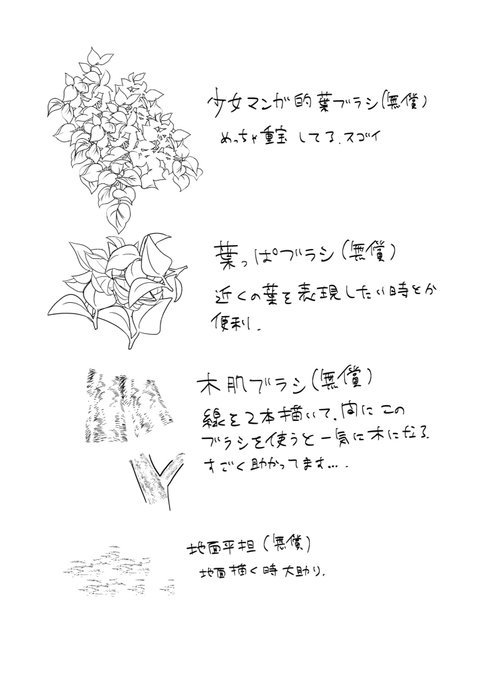 少女マンガ的葉ブラシ(無償)
めっちゃ重宝してる.スゴイ
葉っぱブラシ(無償)
近くの葉を表現したい時とか
便利.
木肌ブラシ(無償)
線を2本描いて、間にこの
ブラシを使うと一気に木になる.
すごく助かってます....
地面平担(無償)
地面描く時大助り.